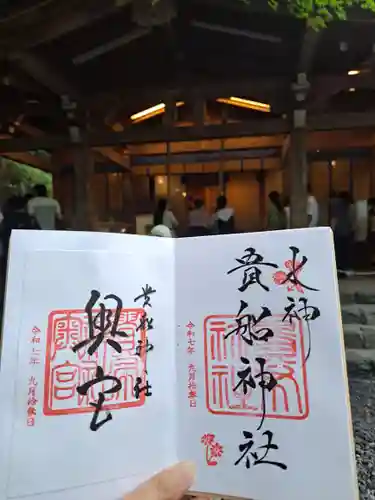 水神
貴船神社
令和七年 九月拾
貴船神社
奥宮
令和七年 九月拾